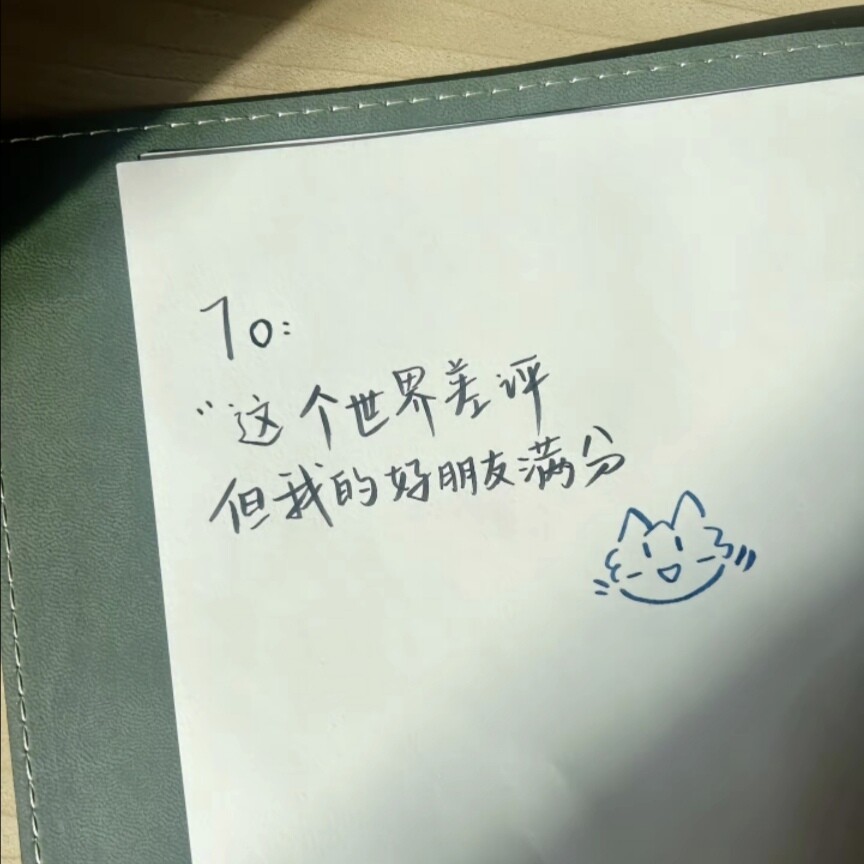 To:
“这个世界差评
但我的好朋友满分